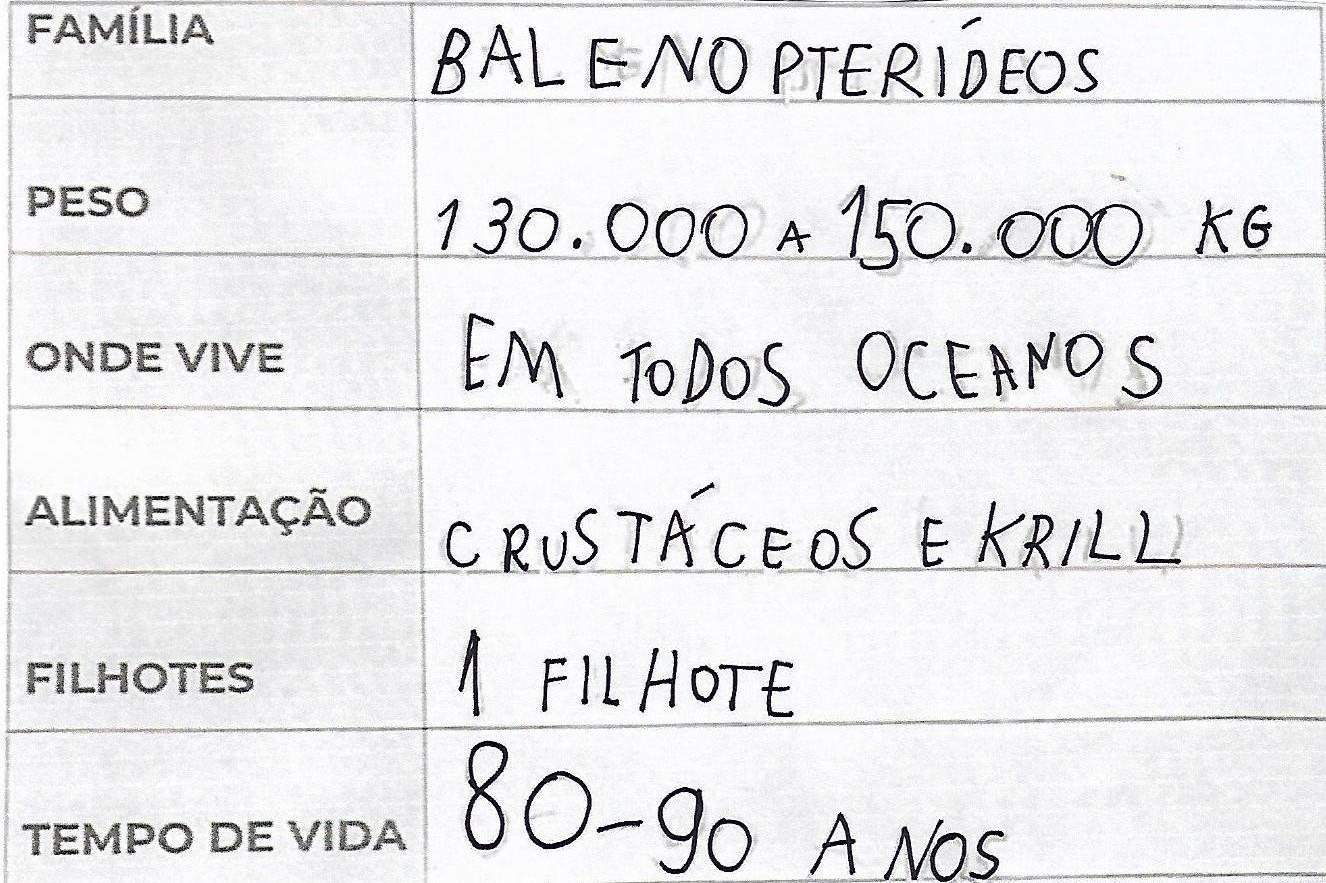 FAMÍLIA BALENOPTERÍDEOS
PESO 130.000 A 150.000 KG
ONDE VIVE EM TODOS OCEANOS
ALIMENTAÇÃO CRUSTÁCEOS E KRILL
FILHOTES 1 FILHOTE
TEMPO DE VIDA 80-90 ANOS